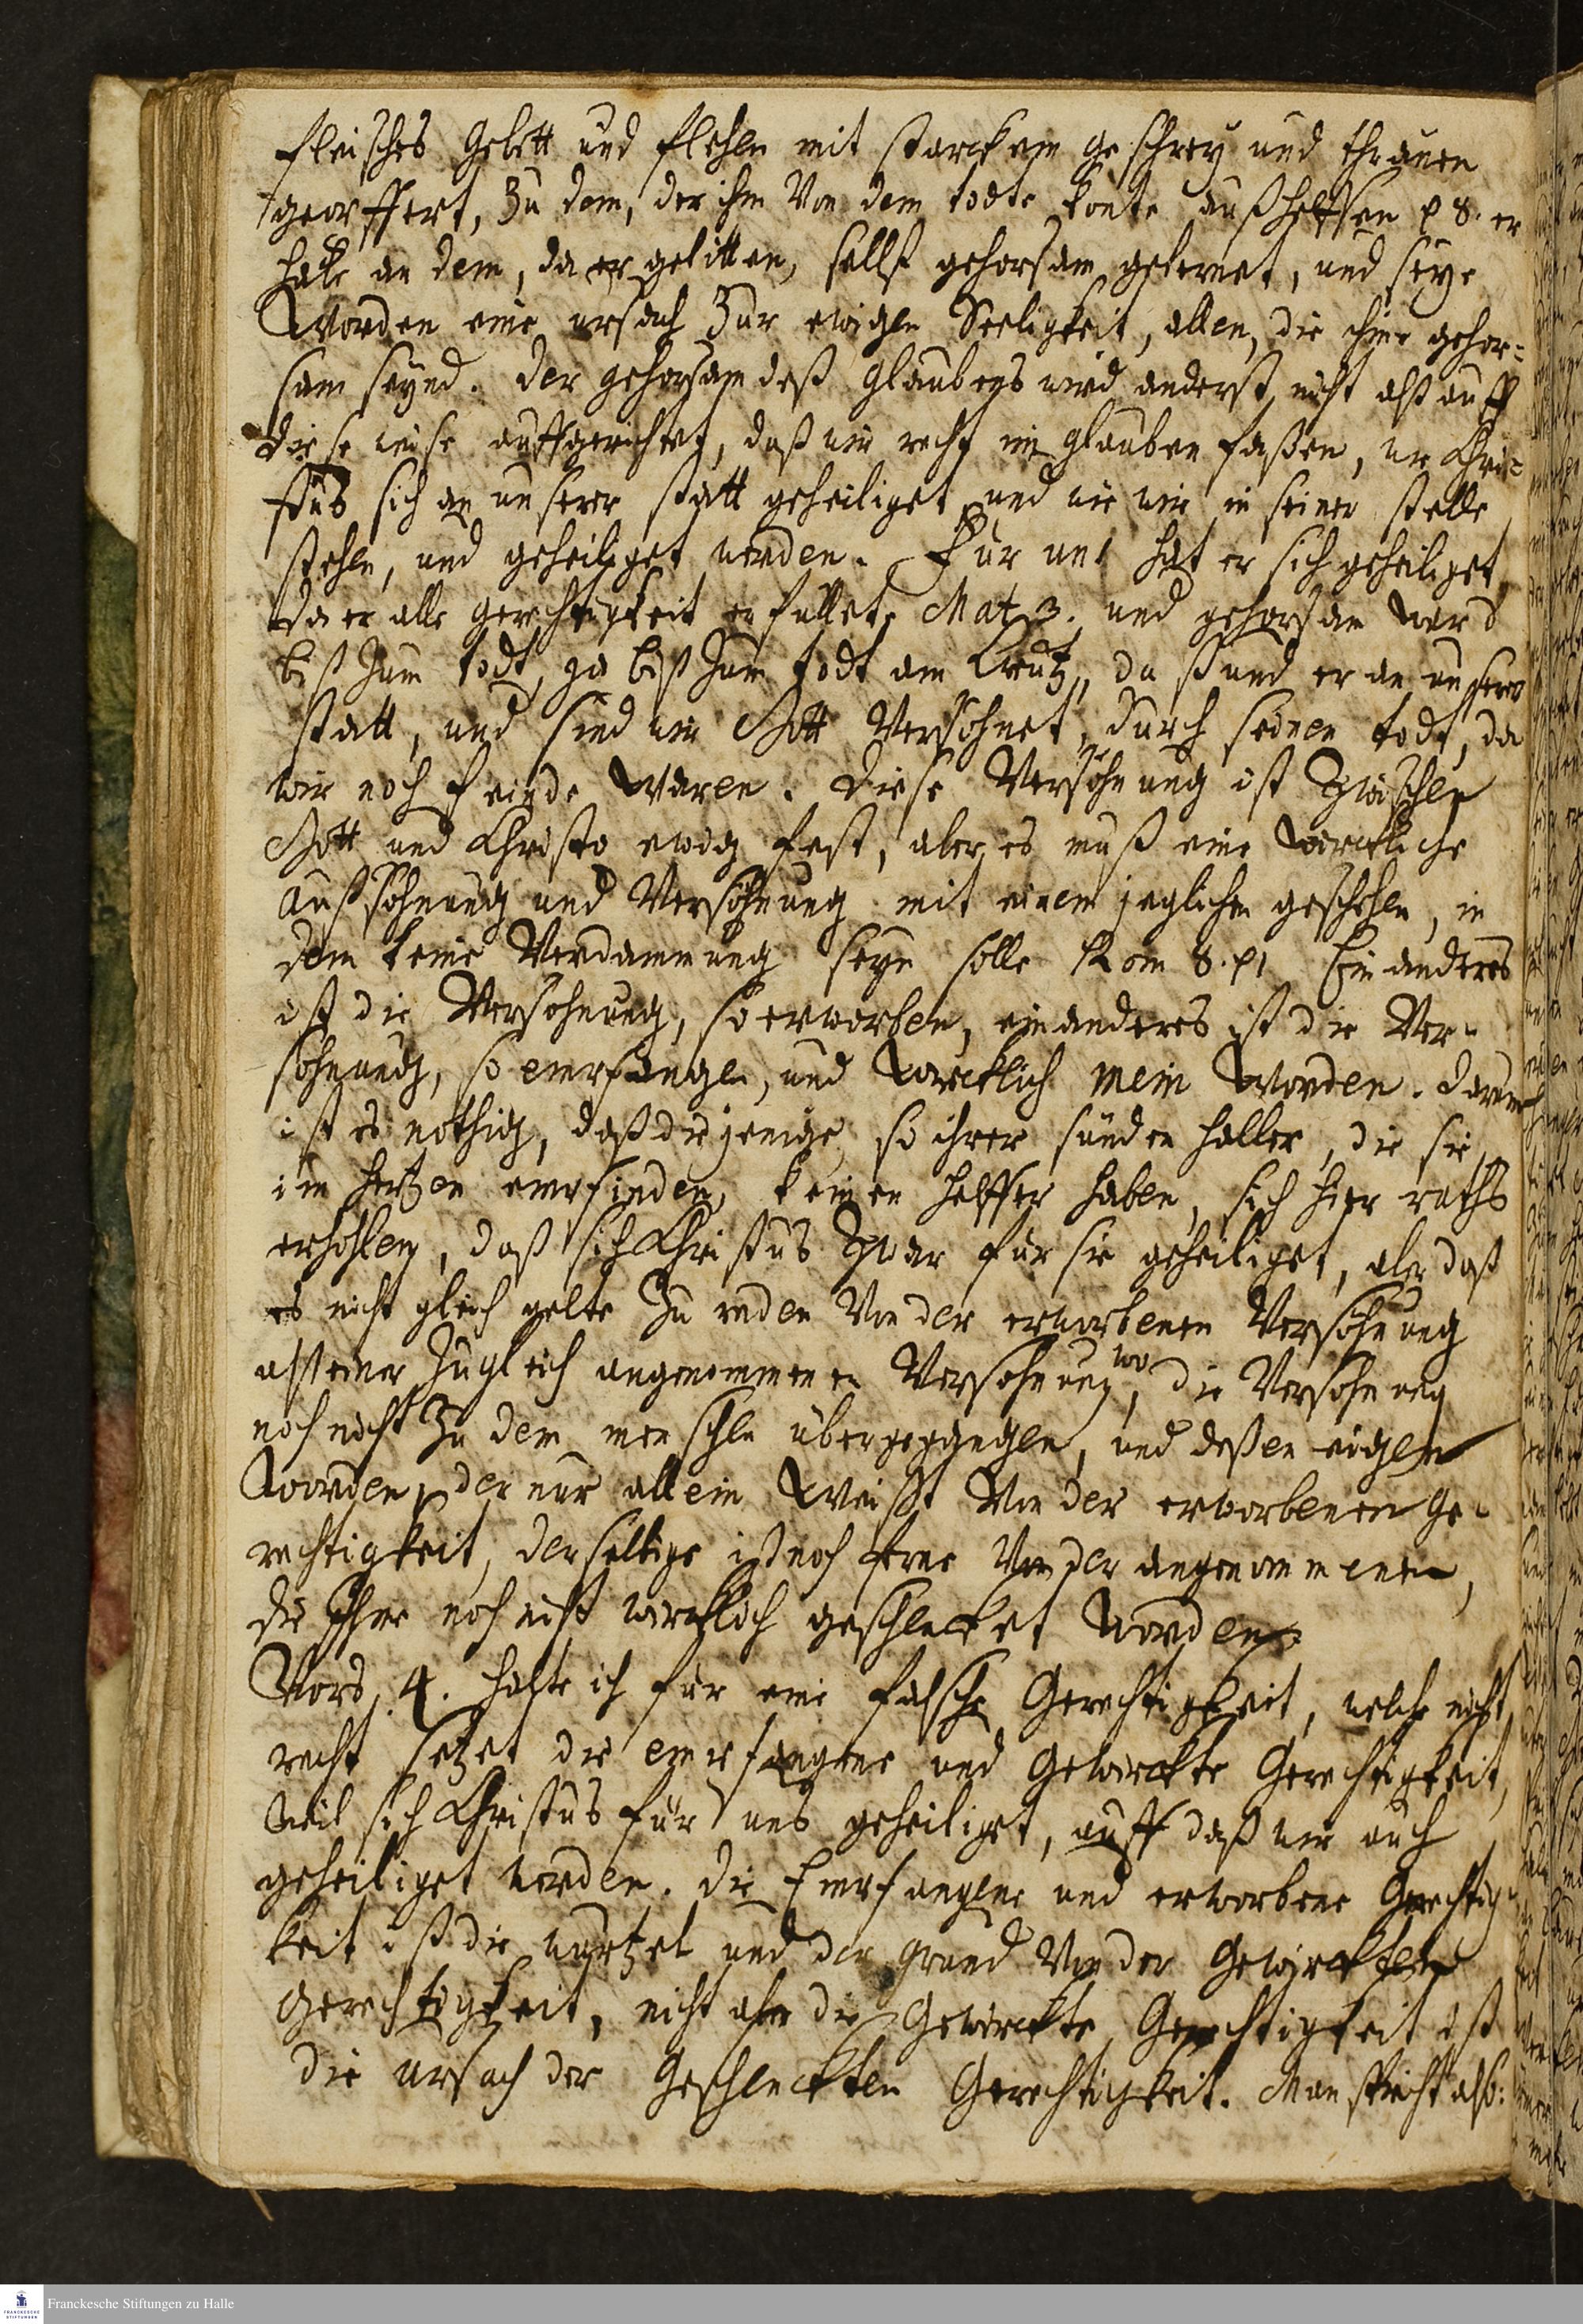 fleisches Gebett und flehen mit starckem geschrey und thränen
georffert, Zu dem, der ihm Von dem todte könte außhelffen p 8. er
habe an dem, da er gelitten, selbst gehorsam gelernet, und seye
Worden eine ursach Zur ewigen Seeligkeit, allen, die ihme gehor=
sam seynd. Der gehorsam deß glaubens wird anderst nicht alß auff
diese weise auffgerichtet, daß wir recht im glauben faßen, wie Chri=
stus sich an unserer statt geheiliget und wie wir in seiner stelle
stehen, und geheiliget werden. Für uns hat er sich geheiliget,
da er alle gerechtigkeit erfüllet, Mat. 3. und gehorsam ward
biß zum todt, ja biß zum todt am Creutz, da stund er an unserer
statt, und sind wir Gott Versöhnet durch seinen todt, da
wir noch feinde Waren. Diese Versöhnung ist Zwischen
Gott und Christo ewig fest, aber es muß eine würckliche
außsöhnung und Versöhnung mit einem jeglichen geschehen, in
dem keine Verdammung seyn solle Rom 8. p 1 Ein anderes
ist die Versöhnung, so erworben, ein anderes ist die Ver=
söhnung, so empfangen, und Würcklich mein Worden. Darum
ist es nöthig, daß diejenige so ihrer sünden halber, die sie
im hertzen empfinden, keinen helffer haben, sich hier raths
erhohlen, daß sich Christus Zwar für sie geheiliget, aber daß
es nicht gleich gelte Zu reden Von der erworbenen Versöhnung
alß einer Zugleich angenommenen Versöhnung, wo die Versöhnung
noch nicht Zu dem menschen übergegangen, und deßen eigen
Worden, der nur allein Weißt Von der erworbenen Ge=
rechtigkeit, derselbige ist noch ferne Von der angenommenen,
die Ihme noch nicht würcklich geschencket Worden.
Vors 4. halte ich für eine falsche Gerechtigkeit, welche nicht
recht setzet die empfangene und Gewürckte Gerechtigkeit,
Weil sich Christus für uns geheiliget, auff daß wir auch
geheiliget werden. Die Empfangene und erworbene Gerechtig=
keit ist die wurtzel und der grund Von der Gewürckten
Gerechtigkeit, nicht aber die Gewürckte Gerechtigkeit ist
die ursach der Geschenckten Gerechtigkeit. Man spricht also:
Franckesche Stiftungen zu Halle